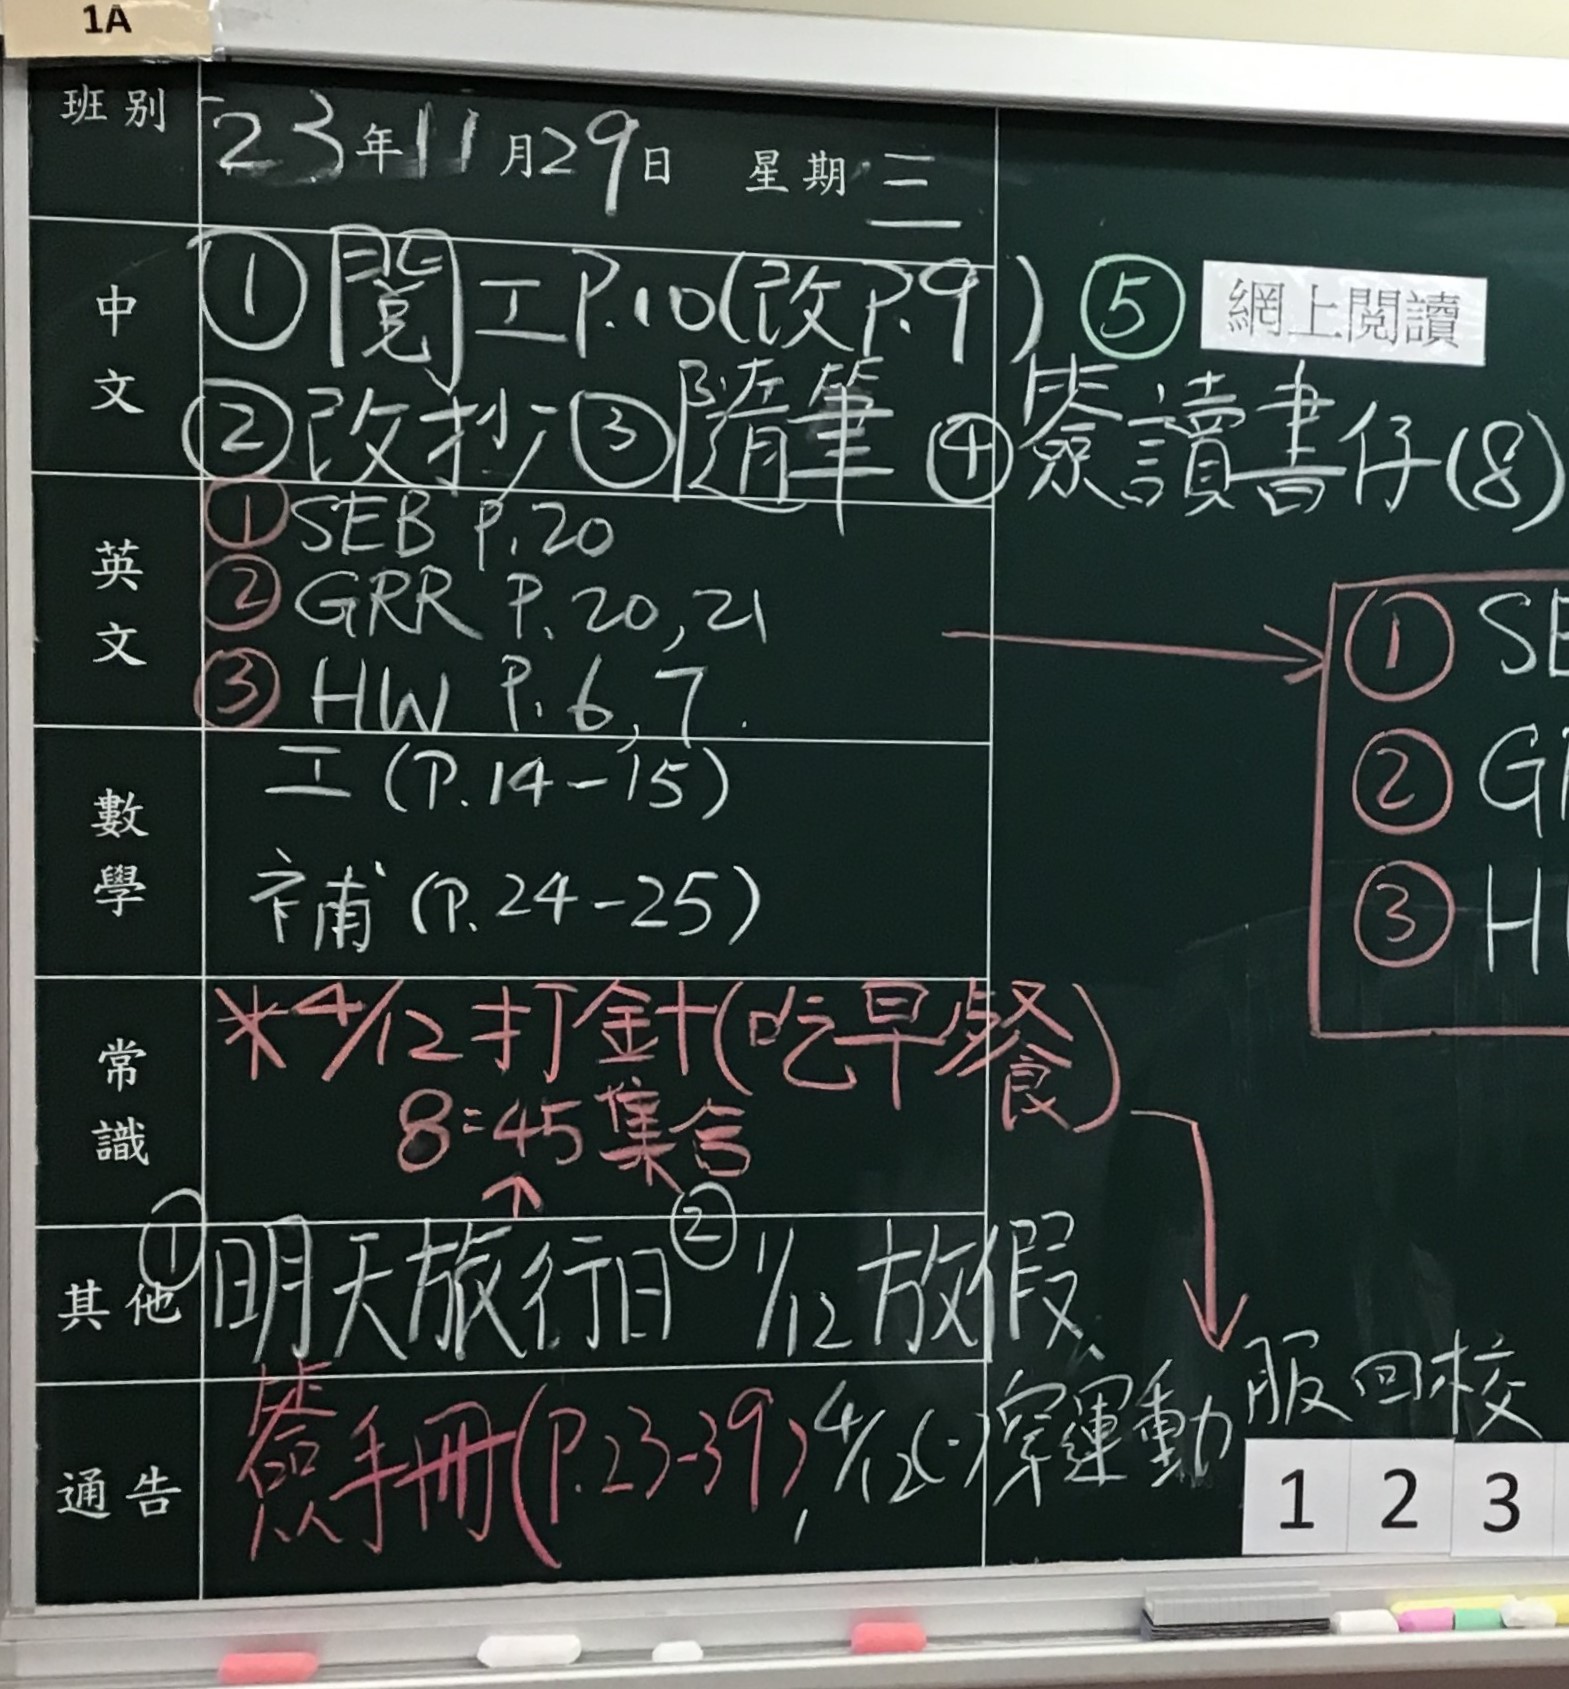 1A
班別 23年11月29日 星期三
中文 ①閱工P.10(改P.9) ⑤ 網上閱讀
②改抄 ③隨筆 ④簽讀書仔(8)
英文 ①SEB P.20
②GRR P.20,21
③HW P.6,7.
① SE
② GR
③ H
數學 工(P.14-15)
補(P.24-25)
常識 *4/12打針(吃早餐)
8:45集合
其他 ①明天旅行日 ②1/12放假
通告 簽手冊(P.23-39), 4/12(一)穿運動服回校
1 2 3